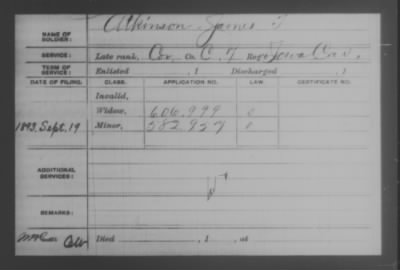 Atkinson, James T
NAME OF SOLDIER:
SERVICE: Late rank, Cor, Co. C, 7 Reg't Iowa Cav.
TERM OF SERVICE: Enlisted , 1 Discharged , 1
DATE OF FILING. CLASS. APPLICATION NO. LAW. CERTIFICATE NO.
Invalid,
Widow, 606,999
1893, Sept. 19 Minor, 582957
ADDITIONAL SERVICES:
REMARKS:
Died , 1 , at